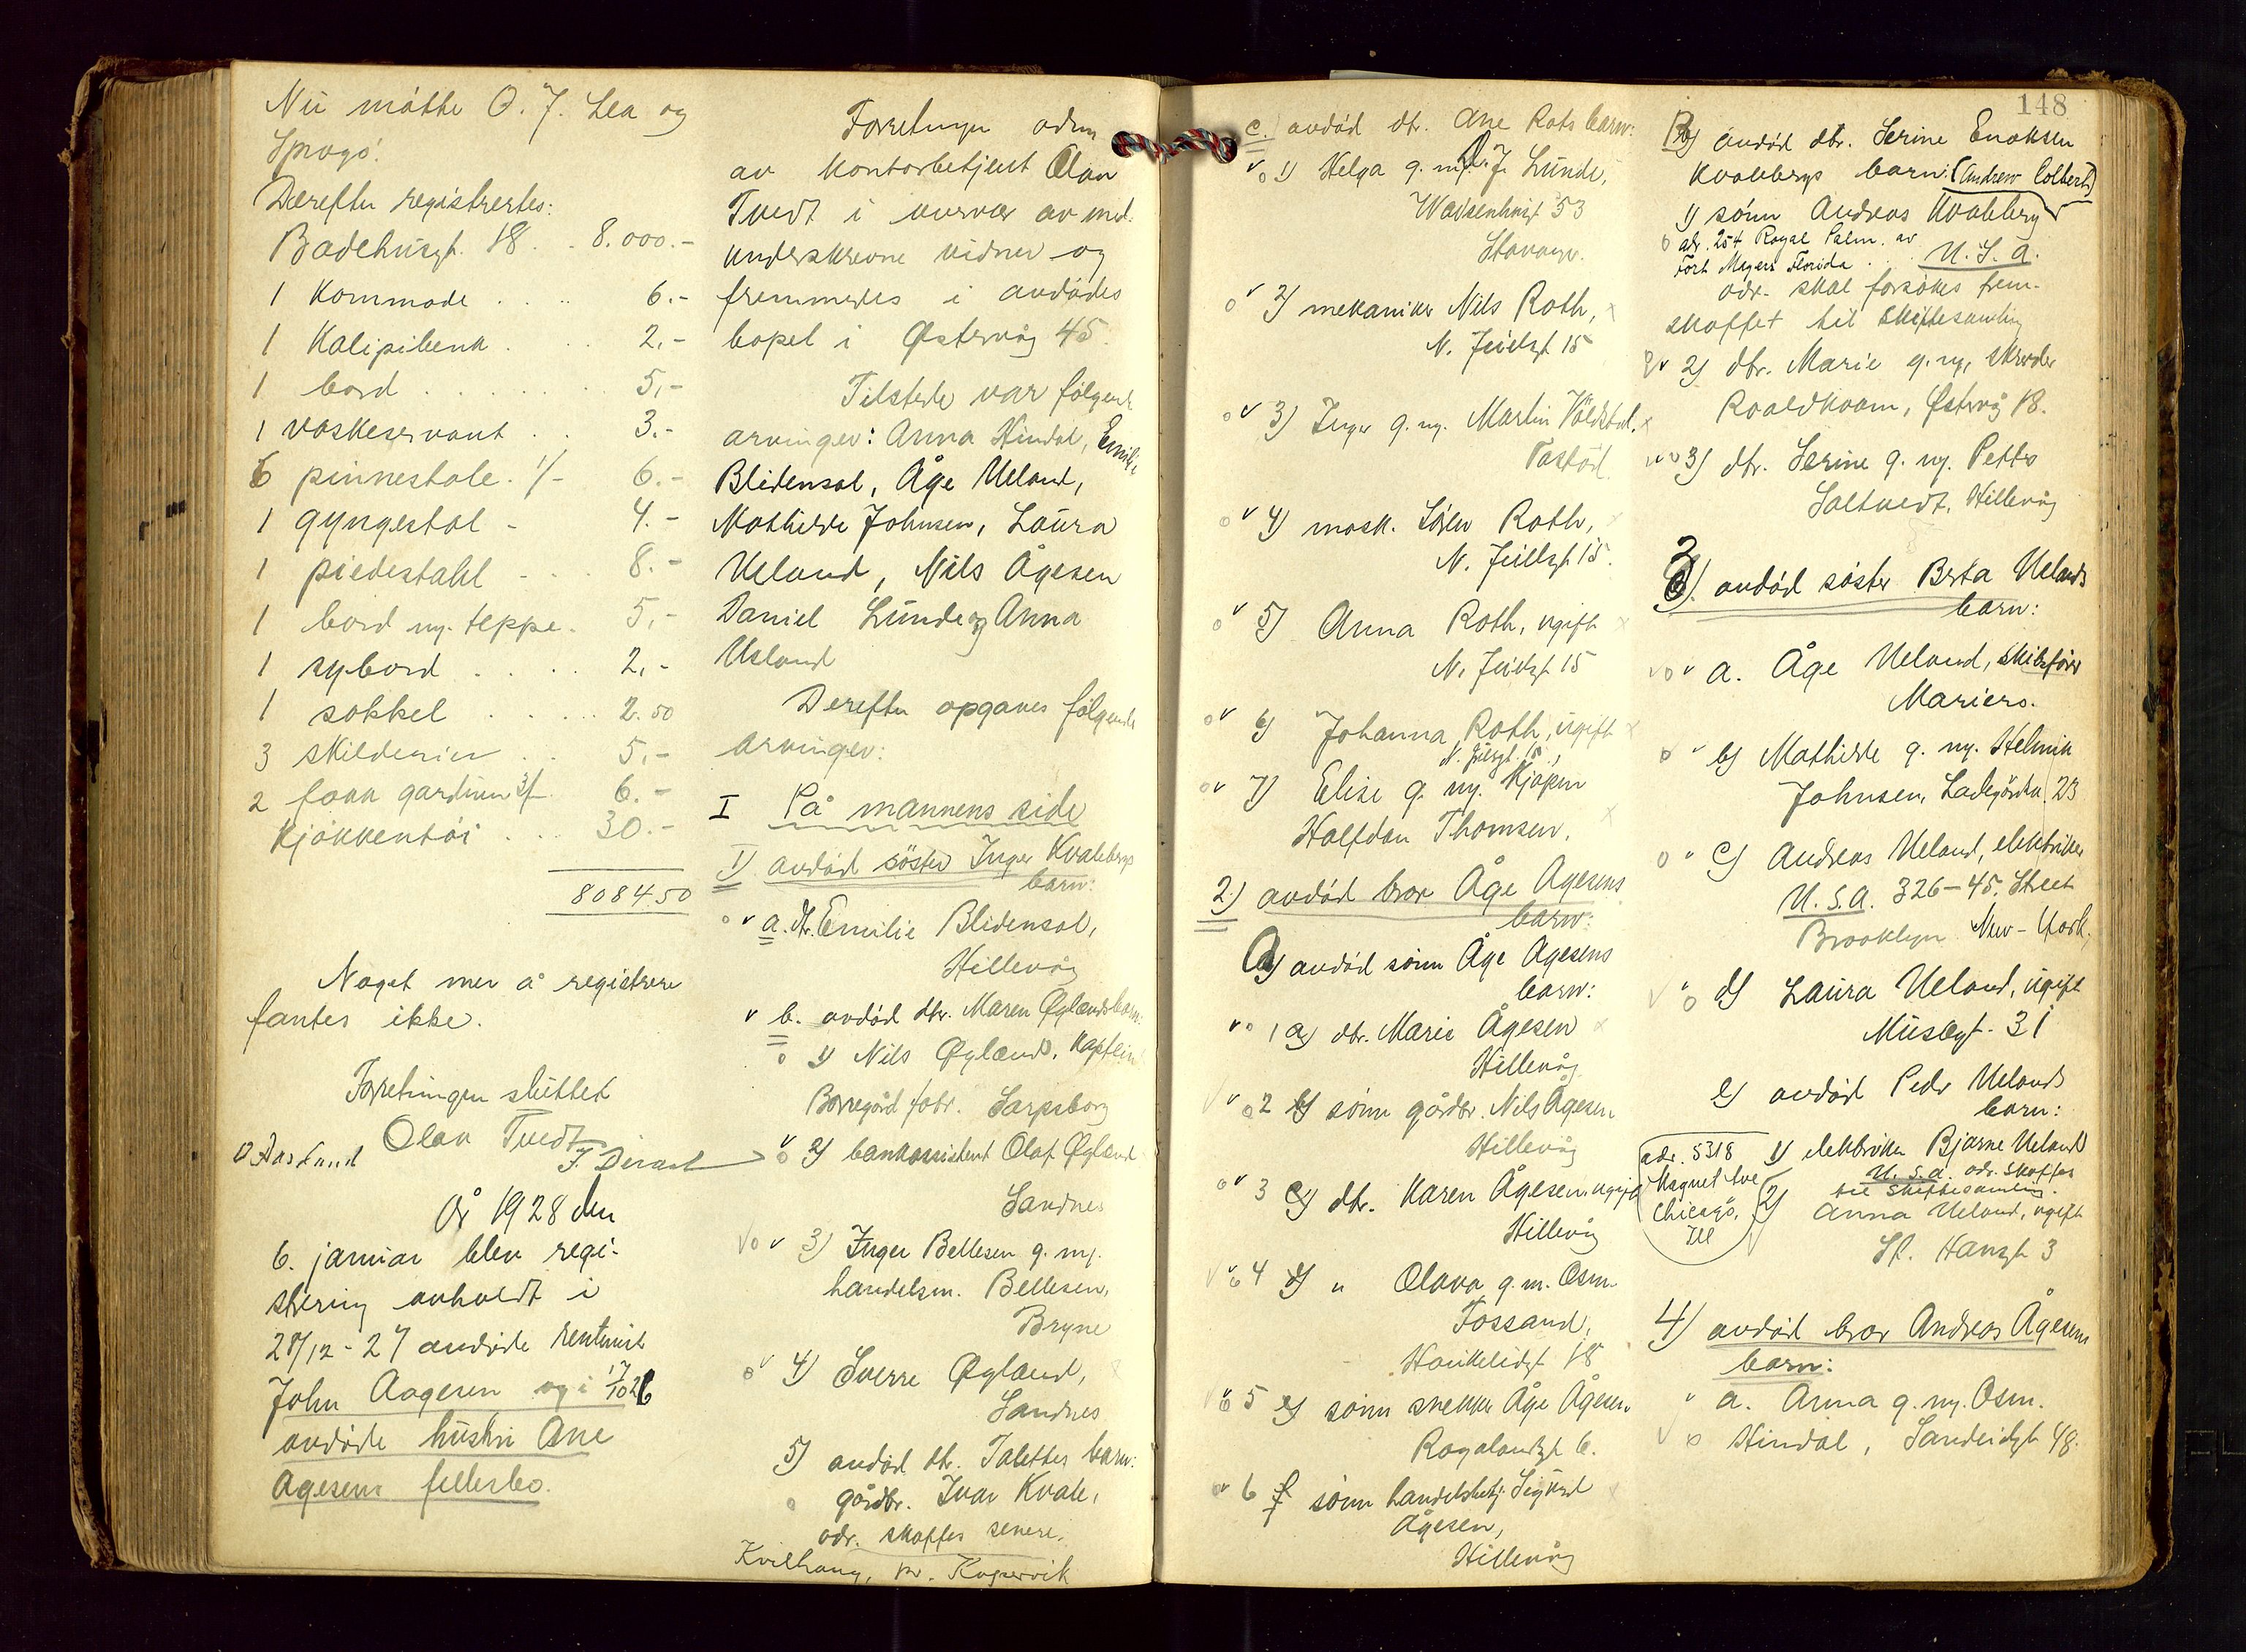 Nu møtte O. J. Lea og
Derefter registrertes:
Badehusgt. 18 . . 8.000.-
1 Kommode . . . . 6.-
1 Kalipibenk . . . 2.-
1 bord . . . . . . 5,-
1 vaskeservant . . 3.-
6 pinnestole. 1/- 6.-
1 gyngestol - 4.-
1 piedestahl - . . 8.-
1 bord m. teppe. 5,-
1 sybord . . . . 2,-
1 sokkel . . . . . 2.50
3 skilderier . . 5,-
2 fakk gardiner 3/- 6.-
Kjøkkentøi . . . 30.-
8084.50
Noget mer å registrere
fantes ikke.
Forretningen sluttet
Olav Tvedt
År 1928 den
6. januar blev regi-
strering avholdt i
28/12-27 avdøde rentenist
John Aagesen og i 17/10 26
avdøde hustru Ane
Agesens fellesbo.
Forretningen adm.
av kontorbetjent Olav
Tvedt i nærvær av med-
underskrevne vidner og
fremmedes i avdødes
bopel i Østervåg 45.
Tilstede var følgende
arvinger: Anna Hindal, Emilie
Blidensol, Åge Ueland,
Mathilde Johnsen, Laura
Ueland, Nils Ågesen
Daniel Lunde og Anna
Ueland
Derefter opgaves følgende
arvinger:
I På mannens side
1) avdød søster Inger Kvalebergs
barn:
o v a. dtr. Emilie Blidensol,
Hillevåg
v b. avdød dtr. Maren Øglænds barn.
o 1) Nils Øglænd, Kaptein
Borregård fabr. Sarpsborg
v o 2) bankassistent Olaf Øglænd
Sandnes
v o v 3) Inger Bellesen g. m.
handelsm. Bellesen,
Bryne
o v 4) Sverre Øglænd,
Sandnes
5) avdød dtr. Talettes barn:
o gårdbr. Ivar Kvale,
adr. skaffes senere.
Kvilhaug, pr. Kopervik
c.) avdød dtr. Ane Rots barn:
v o 1) Helga g. m. D. J. Lunde,
Waisenhusgt 53
Stavanger.
o v 2) mekaniker Nils Roth,
N. Juelsgt 15
o v 3) Inger g. m. Martin Voldstad.
Tastad.
o v 4) mask. Søren Roth,
N. Juelsgt 15.
o v 5) Anna Roth, ugift
N. Juelsgt 15
o v 6) Johanna Roth, ugift
N. Juelsgt. 15,
o v 7) Elise g. m. Kjøpm
Halfdan Thomsen.
2) avdød bror Åge Agesens
barn:
a) avdød sønn Åge Agesens
barn:
v o 1 a) dtr. Marie Ågesen
Hillevåg
v v o 2 b) sønn gårdbr. Nils Ågesen
Hillevåg
o v 3 c) dtr. Karen Ågesen ugift
Hillevåg
v v o 4 d) " Olava g. m. Osm.
Tossand,
Haukeligt 18
v v o 5 e) sønn snekker Åge Ågesen.
Rogalandsgt 6.
o v 6 f sønn handelsbetj. Sigurd
Ågesen,
Hillevåg
148
b) avdød dtr. Serine Enoksen
Kvalebergs barn: (Andrew Colbert)
1) sønn Andreas Kvaleberg
o adr. 254 Royal Palm. av
Fort Myers Florida . . . U. S. A.
adr. skal forsøkes frem-
skaffet til skiftesamling
v 2) dtr. Marie g. m. skredder
Roaldkvam, Østervåg 18.
v v o 3) dtr. Serine g. m. Petter
Saltvedt, Hillevåg
3) avdød søster Berta Uelands
barn:
v o v a. Åge Ueland, skibsfører
Mariero.
o v b) Mathilde g. m. Helmik
Johnsen, Ladegårdsv 23
o v c) Andreas Ueland, elektriker
U. S. A. 326-45. Street
Brooklyn New-York,
v v o d) Laura Ueland, ugift
Musegt. 31
e) avdød Peder Uelands
barn:
1) elektriker Bjarne Ueland
U. S. a. adr. skaffes
til skiftesamling.
adr. 5318
Magnet Ave
Chicago,
Ill
2) Anna Ueland, ugift
St. Hansgt 3
4) avdød bror Andreas Ågesens
barn:
v a. Anna g. m. Osm.
v o Hindal, Sandeidgt 48.